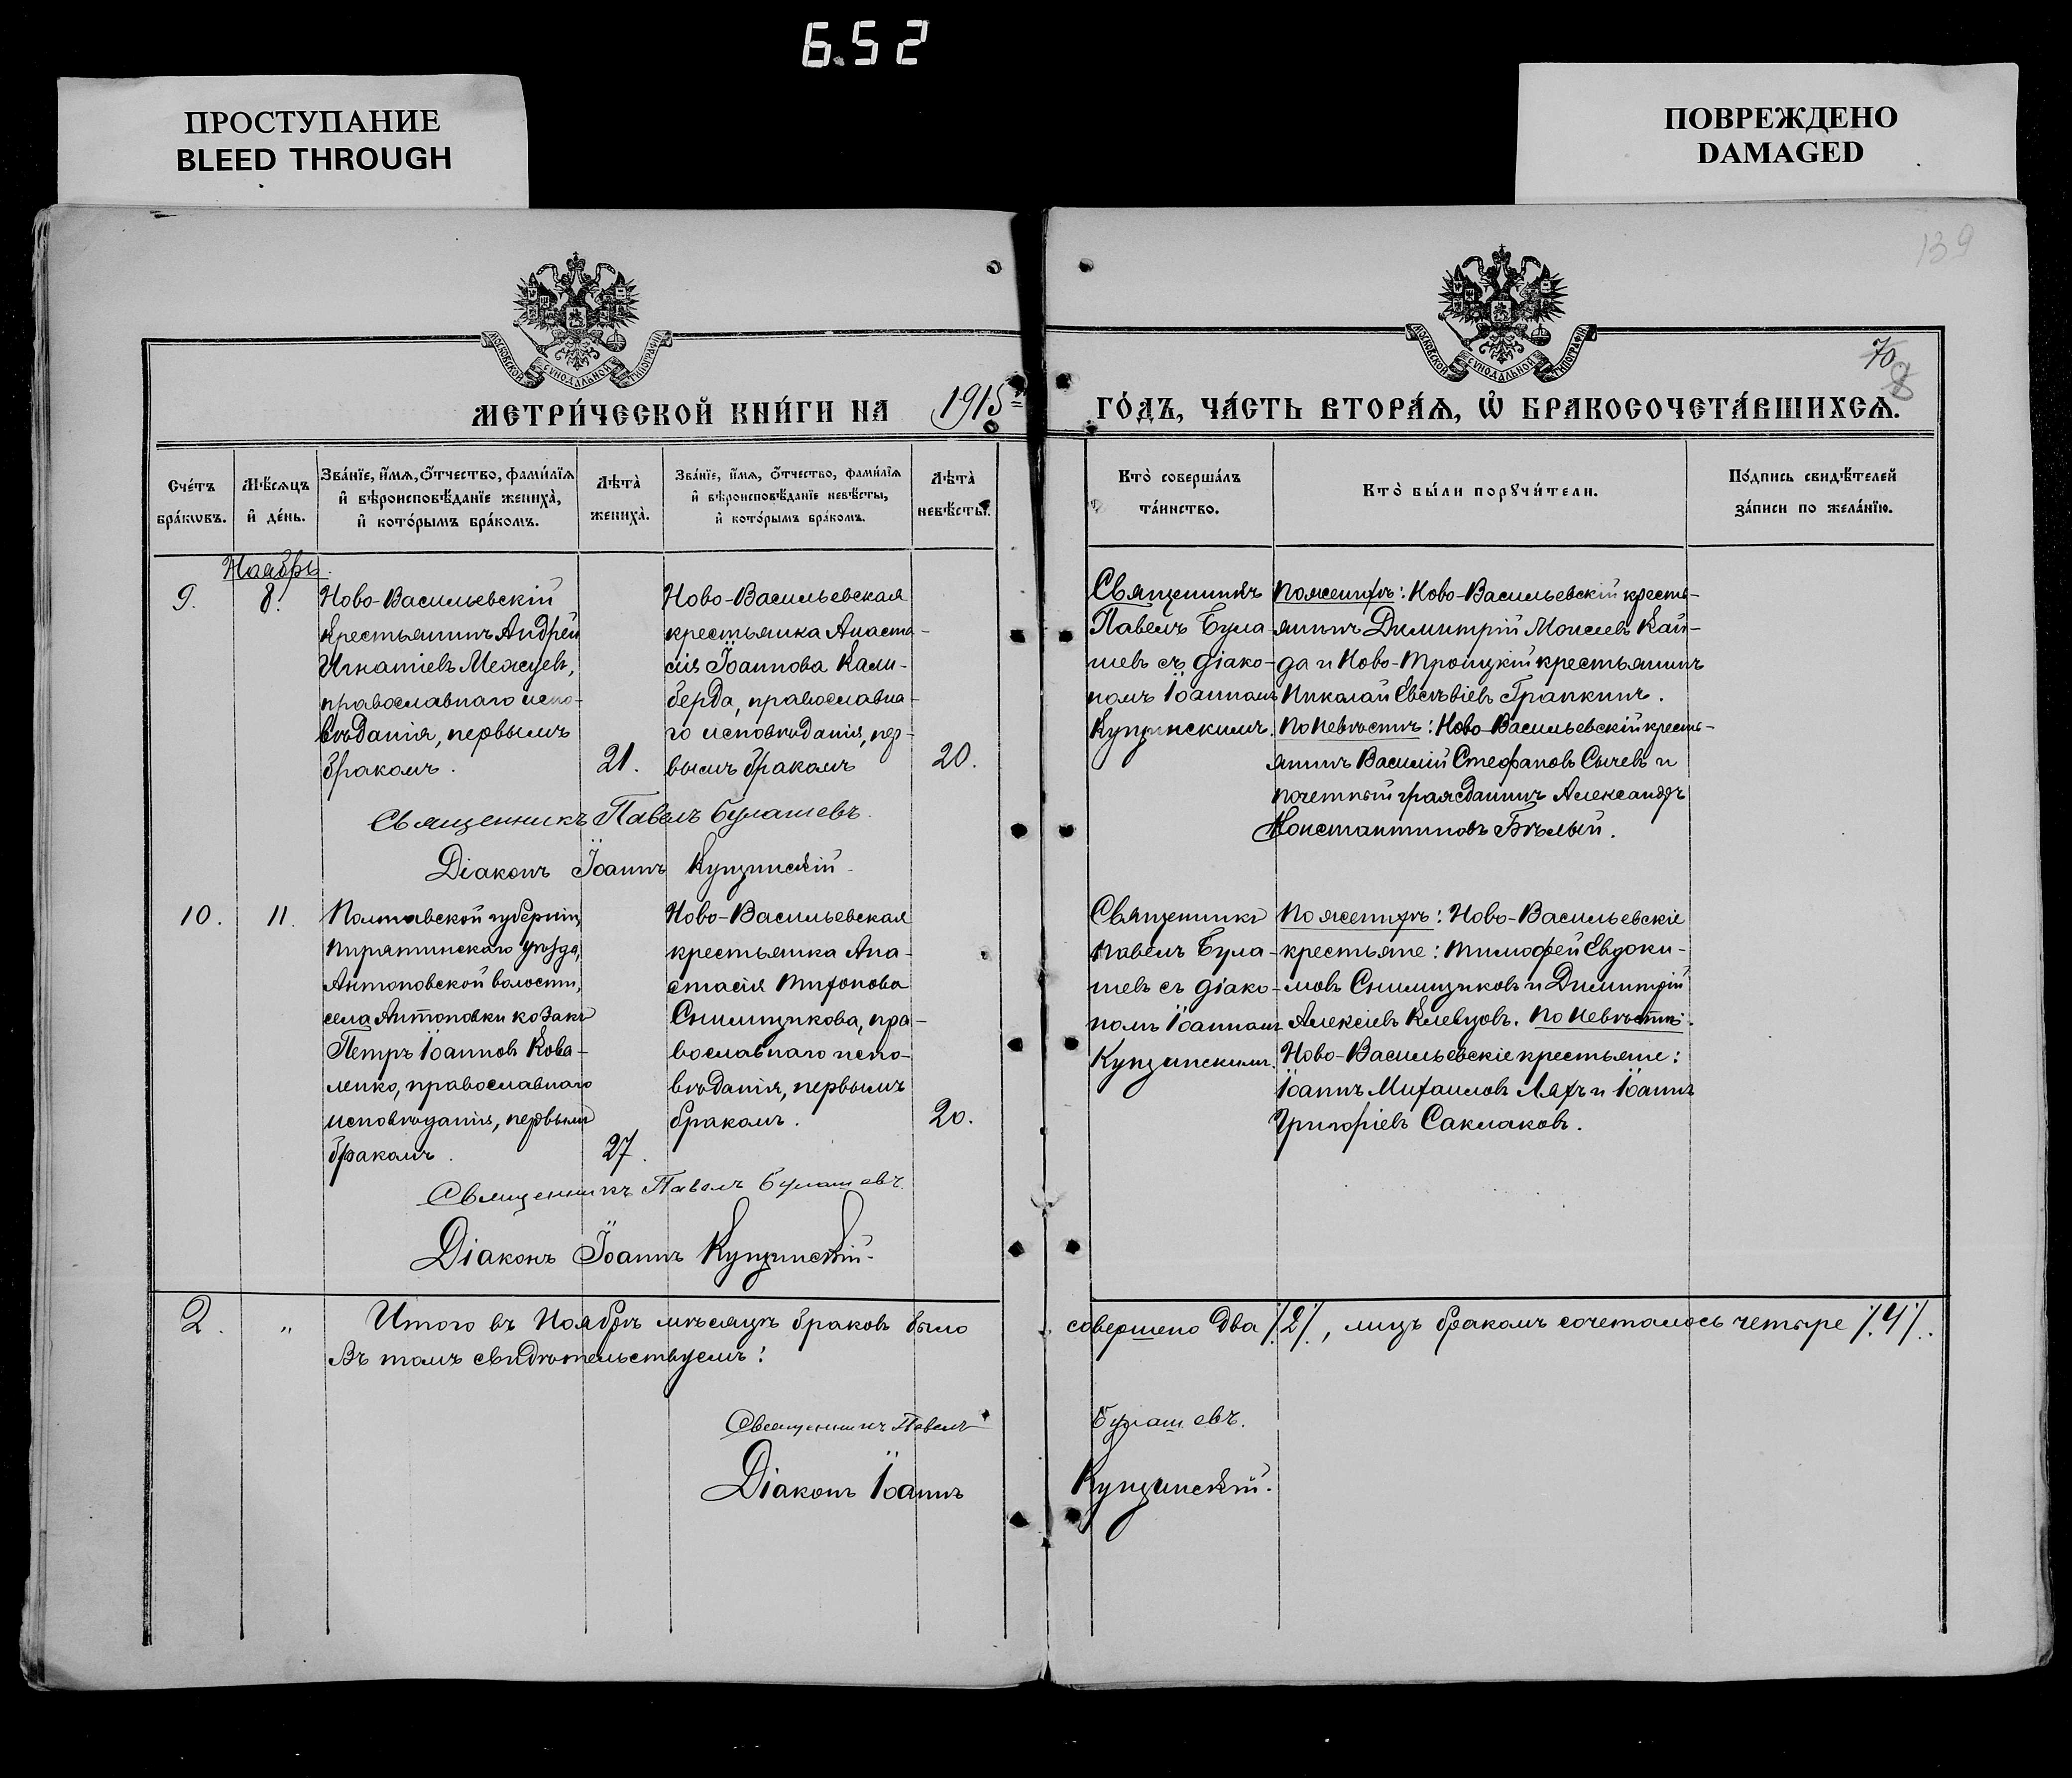 6.52
ПРОСТУПАНИЕ
BLEED THROUGH
ПОВРЕЖДЕНО
DAMAGED
139
МОСКОВСКОЙ СѴНОДАЛЬНОЙ ТИПОГРАФІИ
МОСКОВСКОЙ СѴНОДАЛЬНОЙ ТИПОГРАФІИ
70
8
МЕТРИ́ЧЕСКОЙ КНИ́ГИ НА 1915
ГО́ДЪ, ЧА́СТЬ ВТОРА́Ѧ, Ѽ БРАКОСОЧЕТА́ВШИХСѦ.
Сче́тъ
бра́кѡвъ.
Мѣ́сѧцъ
и҆ де́нь.
Зва́нїе, и҆́мѧ, ѻ҆́тчество, фами́лїѧ
и҆ вѣроисповѣ́данїе жениха̀,
и҆ кото́рымъ бра́комъ.
Лѣ́та̀
жениха̀.
Зва́нїе, и҆́мѧ, ѻ҆́тчество, фами́лїѧ
и҆ вѣроисповѣ́данїе невѣ́сты,
и҆ кото́рымъ бра́комъ.
Лѣ́та̀
невѣ́сты.
Кто̀ соверша́лъ
та́инство.
Кто̀ бы́ли порꙋчи́тели.
По́дпись свидѣ́телей
за́писи по жела́нїю.
Ноябрь.
9.
8.
Ново-Васильевскій
крестьянинъ Андрей
Игнатіевъ Межуевъ,
православнаго испо-
вѣданія, первымъ
бракомъ.
21.
Ново-Васильевская
крестьянка Анаста-
сія Іоаннова Кали-
берда, православна-
го исповѣданія, пер-
вымъ бракомъ
20.
Священникъ
Павелъ Була-
шевъ съ діако-
номъ Іоанномъ
Купчинскимъ.
По женихѣ: Ново-Васильевскій кресть-
янинъ Димитрій Моисеевъ Кай-
да и Ново-Троицкій крестьянинъ
Николай Евсѣвіевъ Гранкинъ.
По невѣстѣ: Ново-Васильевскій кресть-
янинъ Василій Стефановъ Сычевъ и
почетный гражданинъ Александръ
Константиновъ Бѣлый.
Священникъ Павелъ Булашевъ.
Діаконъ Іоаннъ Купчинскій.
10.
11.
Полтавской губерніи,
Пирятинскаго уѣзда,
Антоновской волости,
села Антоновки козакъ
Петръ Іоанновъ Кова-
ленко, православнаго
исповѣданія, первымъ
бракомъ.
27.
Ново-Васильевская
крестьянка Ана-
стасія Тихонова
Снимщикова, пра-
вославнаго испо-
вѣданія, первымъ
бракомъ.
20.
Священникъ
Павелъ Була-
шевъ съ діако-
номъ Іоанномъ
Купчинскимъ.
По женихѣ: Ново-Васильевскіе
крестьяне: Тимофей Евдоки-
мовъ Снимщиковъ и Димитрій
Алексіевъ Клевцовъ. По невѣстѣ:
Ново-Васильевскіе крестьяне:
Іоаннъ Михаиловъ Ляхъ и Іоаннъ
Григоріевъ Саклаковъ.
Священникъ Павелъ Булашевъ.
Діаконъ Іоаннъ Купчинскій.
2. " Итого въ Ноябрѣ мѣсяцѣ браковъ было совершено два /.2/., лицъ бракомъ сочеталось четыре /.4/.
Въ томъ свидѣтельствуемъ:
Священникъ Павелъ Булашевъ.
Діаконъ Іоаннъ Купчинскій.